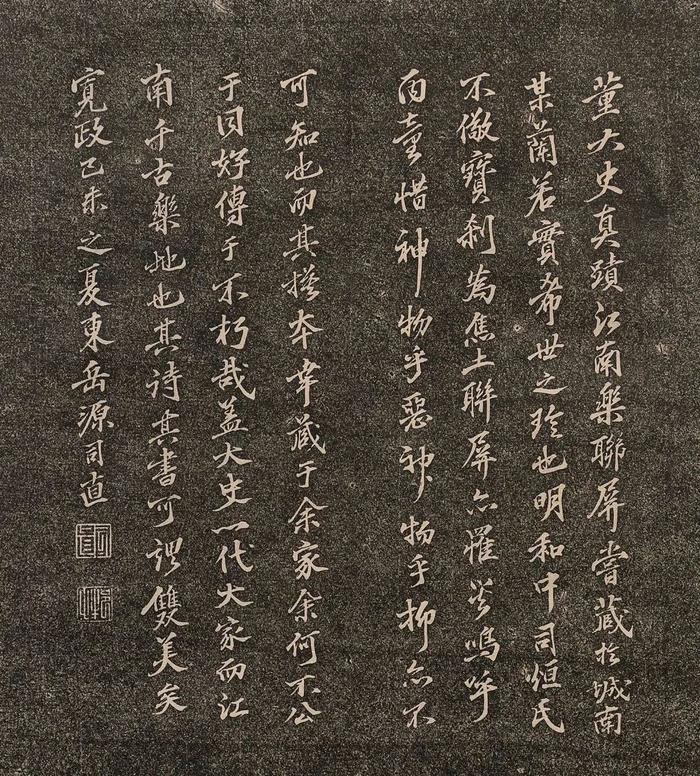 董大史真蹟江南樂聯屏嘗藏於城南
某蘭若實希世之珍也明和中司烜氏
不儆寶剎為焦土聯屏亦罹災嗚呼
丙童惜神物乎惡神物乎抑亦不
可知也而其本幸藏于余家余何不公
于同好傳于不朽哉蓋大史一代大家而江
南千古樂地也其詩其書可謂雙美矣
寬政己未之夏東岳源司直